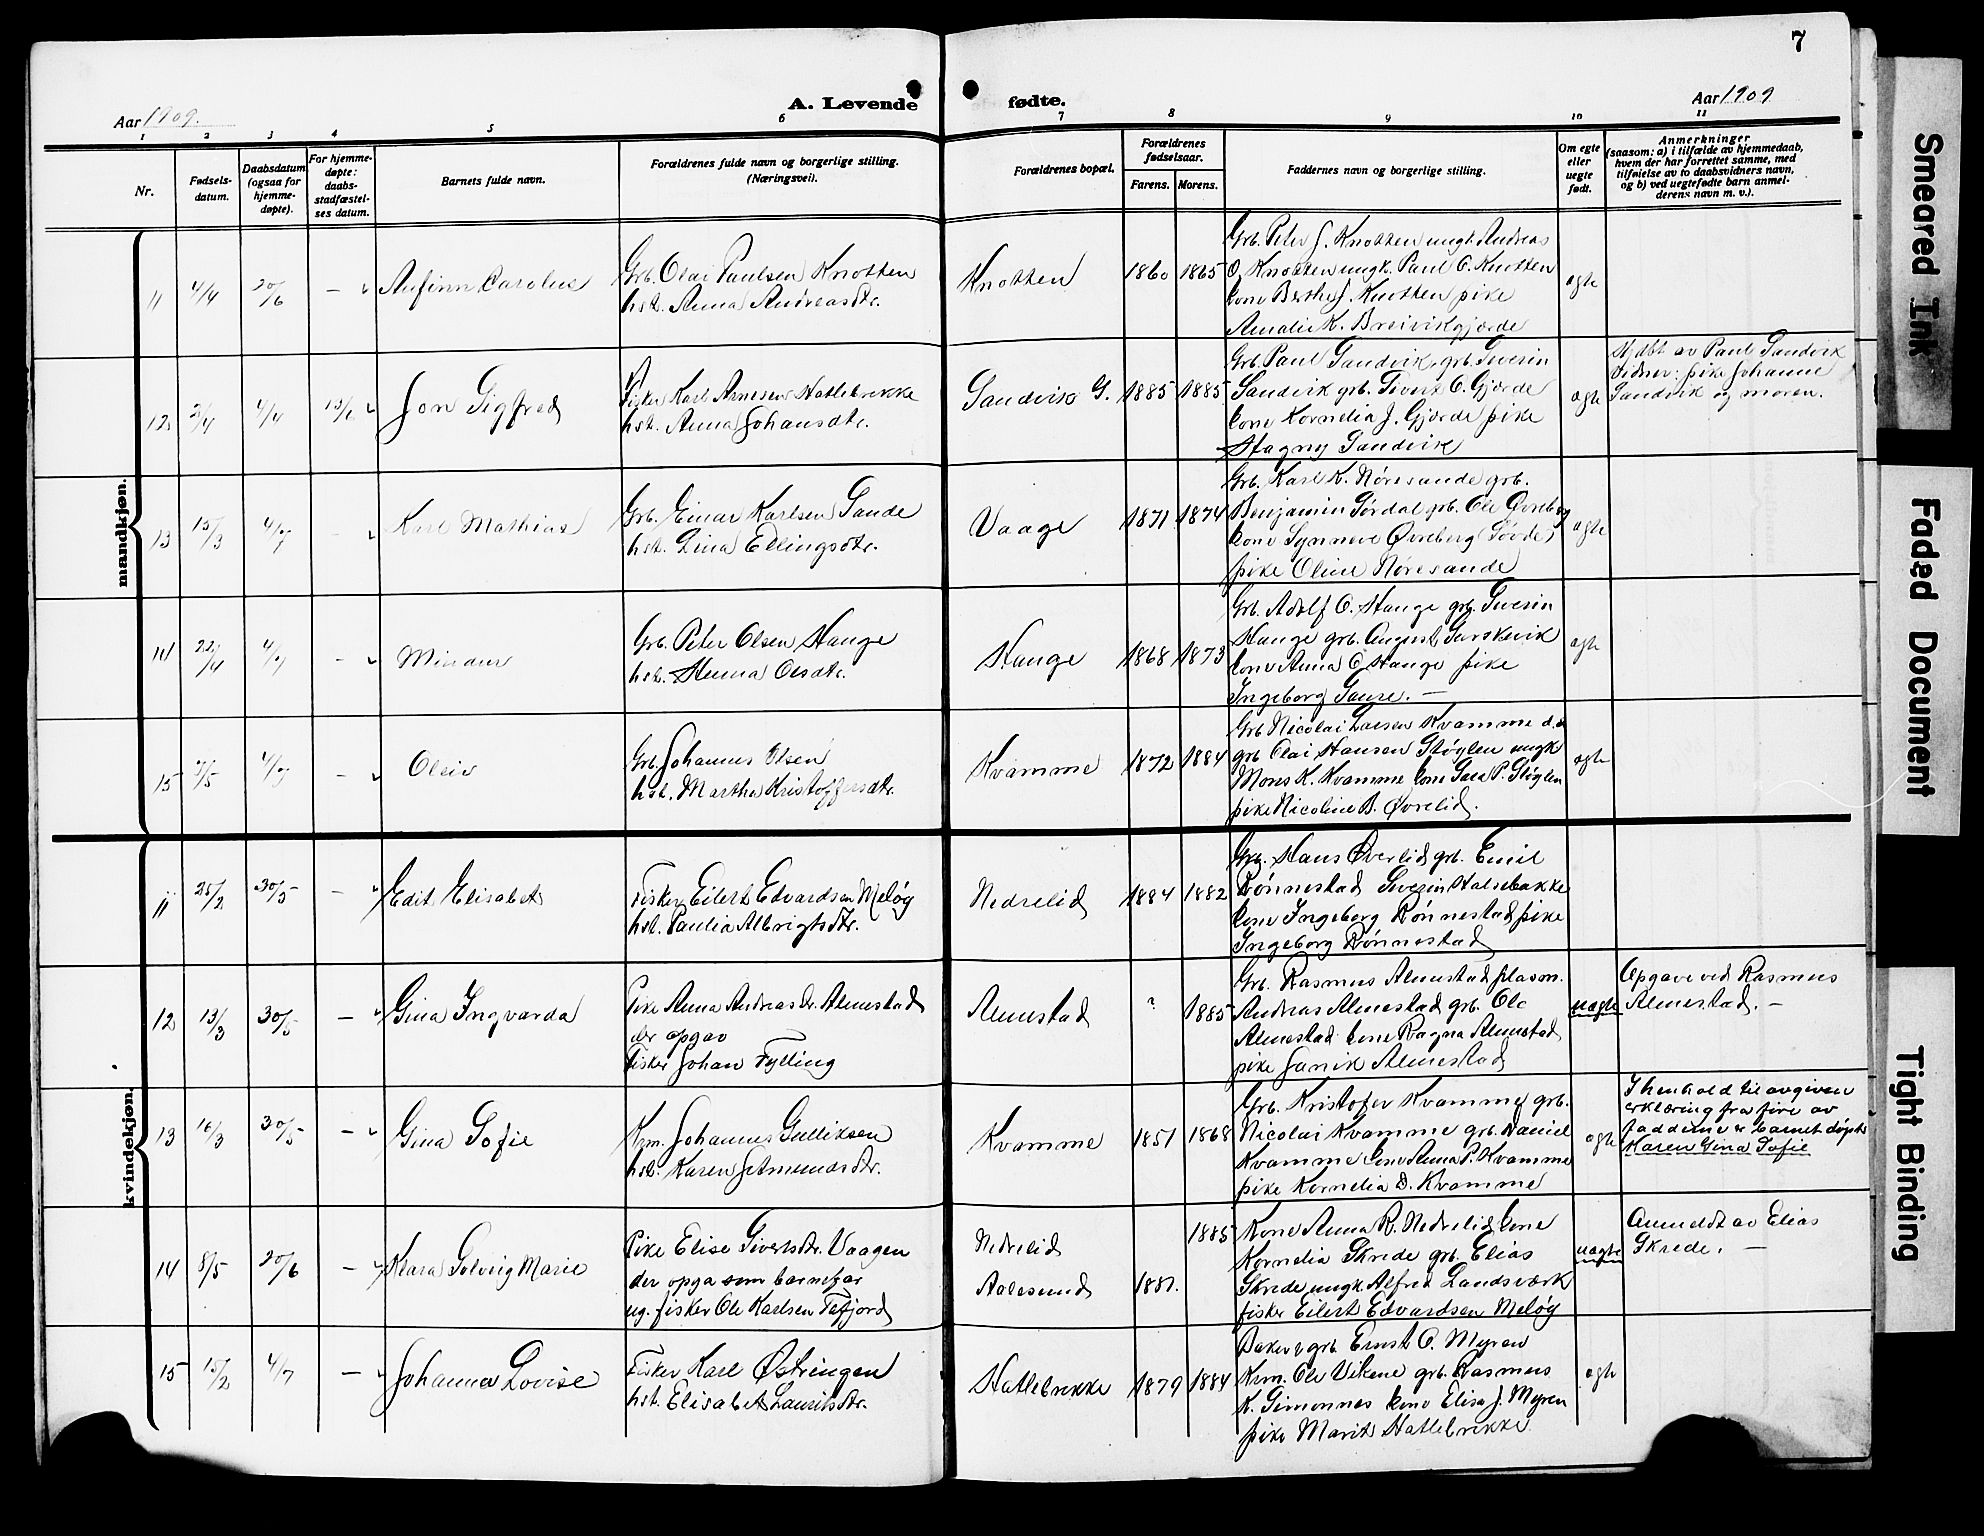 7
Aar 1909.
A. Levende
fødte.
Aar 1909
1 2 3 4 5 6 7 8 9 10 11
Nr.
Fødsels-
datum.
Daabsdatum
(ogsaa for
hjemme-
døpte).
For hjemme-
døpte:
daabs-
stadfæstel-
ses datum.
Barnets fulde navn.
Forældrenes fulde navn og borgerlige stilling.
(Næringsvei).
Forældrenes bopæl.
Forældrenes
fødselsaar.
Farens. Morens.
Faddernes navn og borgerlige stilling.
Om egte
eller
uegte
født.
Anmerkninger
(saasom: a) i tilfælde av hjemmedaab,
hvem der har forrettet samme, med
tilføielse av to daabsvidners navn,
og b) ved uegtefødte barn anmel-
derens navn m. v.).
mandkjøn.
11 4/4 20/6 – Anfinn Carolus
Grb. Olai Paulsen Knotten
hst. Anna Andreasdtr.
Knotten 1860 1865
Grb. Peter J. Knotten ungk. Andreas
O. Knotten ungk. Paul O. Knotten
kone Berthe J. Knotten pike
Amalie K. Breivikgjerde
egte
12 2/4 4/4 13/6 Jon Sigfred
Fisker Karl Arnesen Hatlebrekke
hst. Anna Johansdtr.
Sandvik G. 1885 1885
Grb. Paul Sandvik, grb. Severin
Sandvik grb. Sivert O. Gjerde
kone Kornelia J. Gjerde pike
Magny Sandvik
egte
Hjdbt av Paul Sandvik
Vidner: pike Johanne
Sandvik og moren.
13 15/3 4/7 – Karl Mathias
Grb. Einar Karlsen Sande
hst. Lina Ellingsdtr.
Vaage 1871 1874
Grb. Karl K. Nøresande grb.
Benjamin Sørdal grb. Ole Øvreberg
kone Synneve Øvreberg (Søvde)
pike Oline Nøresande
egte
14 22/4 4/7 – Mindor
Grb. Peter Olsen Hauge
hst. Hanna Olsdtr.
Hauge 1868 1873
Grb. Adolf O. Hauge grb. Severin
Hauge grb. August Gurskevik
kone Anna O. Hauge pike
Ingeborg Saure. –
egte
15 7/5 4/7 – Oleiv
Grb. Johannes Olsen
hst. Martha Kristoffersdtr.
Kvamme 1872 1884
Grb. Nicolai Larsen Kvamme d.æ
grb. Olai Hansen Støylen ungk
Mons K. Kvamme kone Sara P. Støylen
pike Nicoline B. Øvrelid.
egte
kvindekjøn.
11 25/2 30/5 – Edit Elisabet
Fisker Eilert Edvardsen Meløy
hst. Paulia Albrigtsdtr.
Nedrelid 1884 1882
Grb. Hans Øverlid grb. Emil
Rønnestad Severin Halsebakke
kone Ingeborg Rønnestad pike
Ingeborg Rønnestad
12 13/3 30/5 – Gina Ingvarda
Pike Anna Andreasdtr. Almestad
der opgav
Fisker Johan Fylling
Almestad ? 1885
Grb. Rasmus Almestad
Andreas Almestad grb. Ole
Almestad kone Ragna Almestad
pike Janik Almestad
uegte
Opgave ved Rasmus
Almestad. –
13 16/3 30/5 – Gina Sofie
Krm. Johannes Gulliksen
hst. Karen J. Amundsdtr.
Kvamme 1851 1868
Grb. Kristofer Kvamme grb.
Nicolai Kvamme grb. Daniel
Kvamme kone Anna P. Kvamme
pike Kornelia D. Kvamme
egte
I henhold til avgiven
erklæring fra fire av
fadderne er barnet døpt
Karen Gina Sofie
14 8/5 20/6 – Klara Solveig Marie
Pike Elise Sivertsdtr. Vaagen
der opga som barnefar
ug. fisker Ole Karlsen Tafjord
Nedrelid 1885
Aalesund 1881.
Kone Anna R. Nedrelid, kone
Kornelia Skrede grb. Elias
Skrede ungk. Alfred Landsverk
fisker Eilert Edvardsen Meløy
uegte
Anmeldt av Elias
Skrede. –
15 15/2 4/7 – Johanna Lovise
Fisker Karl Østringen
hst. Elisabet Lauritsdtr.
Hatlebrekke 1879 1884
Baker & grb. Ernst O. Myren
Krm. Ole Vikene grb. Rasmus
K. Simonnes kone Elise J. Myren
pike Marit Hatlebrekke
egte
Smeared Ink
Faded Document
Tight Binding